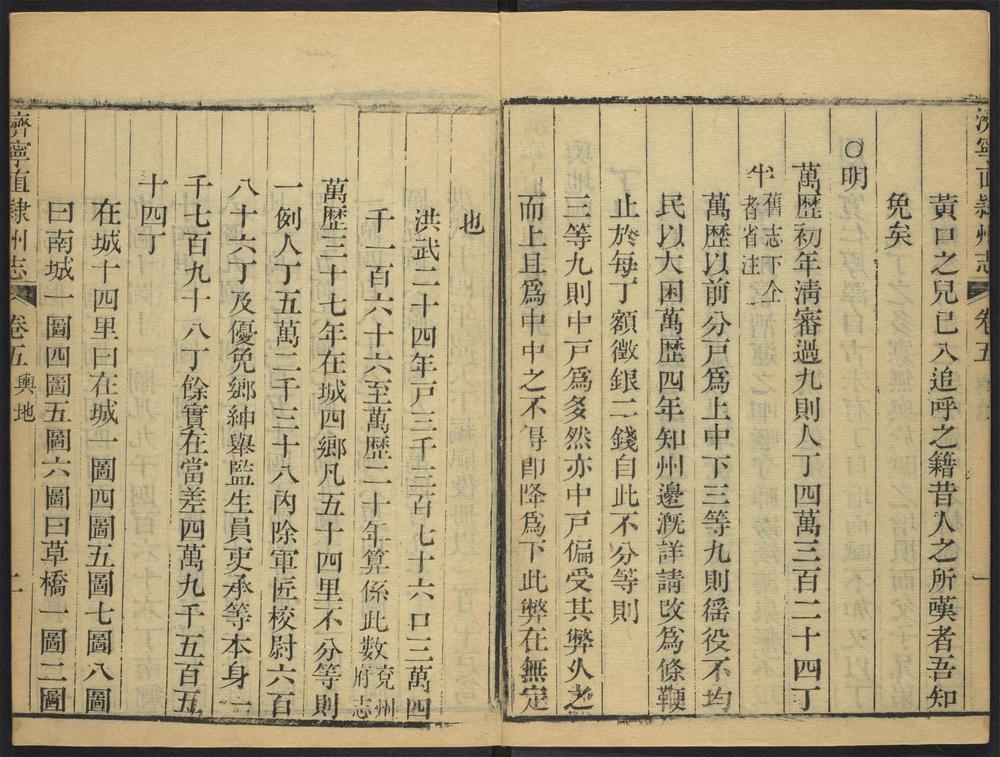 濟寧直隸州志
卷五
一
黃口之兒已入追呼之籍昔人之所嘆者吾知
免矣
○明
萬歷初年淸審過九則人丁四萬三百二十四丁
半
舊志下仝
者省注
萬歷以前分戸爲上中下三等九則徭役不均
民以大困萬歷四年知州邊漑詳請改爲條鞭
止於每丁額徵銀二錢自此不分等則
三等九則中戸爲多然亦中戸偏受其弊久之
而上且爲中中之不得卽降爲下此弊在無定
也
洪武二十四年戸三千三百七十六口三萬四
千一百六十六至萬歷二十年算係此數
兗州
府志
萬歷三十七年在城四鄉凡五十四里不分等則
一例人丁五萬二千三十八內除軍匠校尉六百
八十六丁及優免鄉紳舉監生員吏承等本身一
千七百九十八丁餘實在當差四萬九千五百五
十四丁
在城十四里曰在城一圖四圖五圖七圖八圖
曰南城一圖四圖五圖六圖曰草橋一圖二圖
濟寧直隸州志
卷五
輿地
二